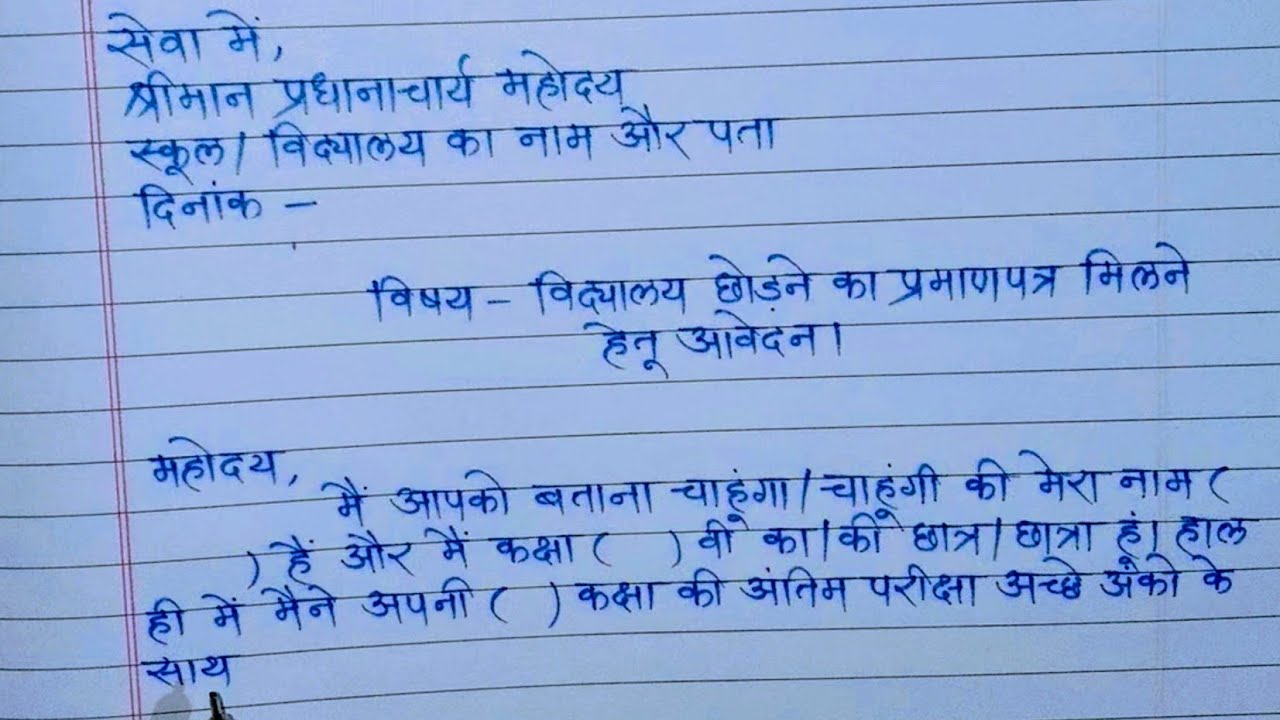 सेवा में,
श्रीमान प्रधानाचार्य महोदय
स्कूल/ विद्यालय का नाम और पता
दिनांक –
विषय – विद्यालय छोड़ने का प्रमाणपत्र मिलने
हेतू आवेदन।
महोदय,
मैं आपको बताना चाहूंगा/चाहूंगी की मेरा नाम (
) हैं और मैं कक्षा ( ) वी का/की छात्र/छात्रा हूं। हाल
ही में मैने अपनी ( ) कक्षा की अंतिम परीक्षा अच्छे अंको के
साथ